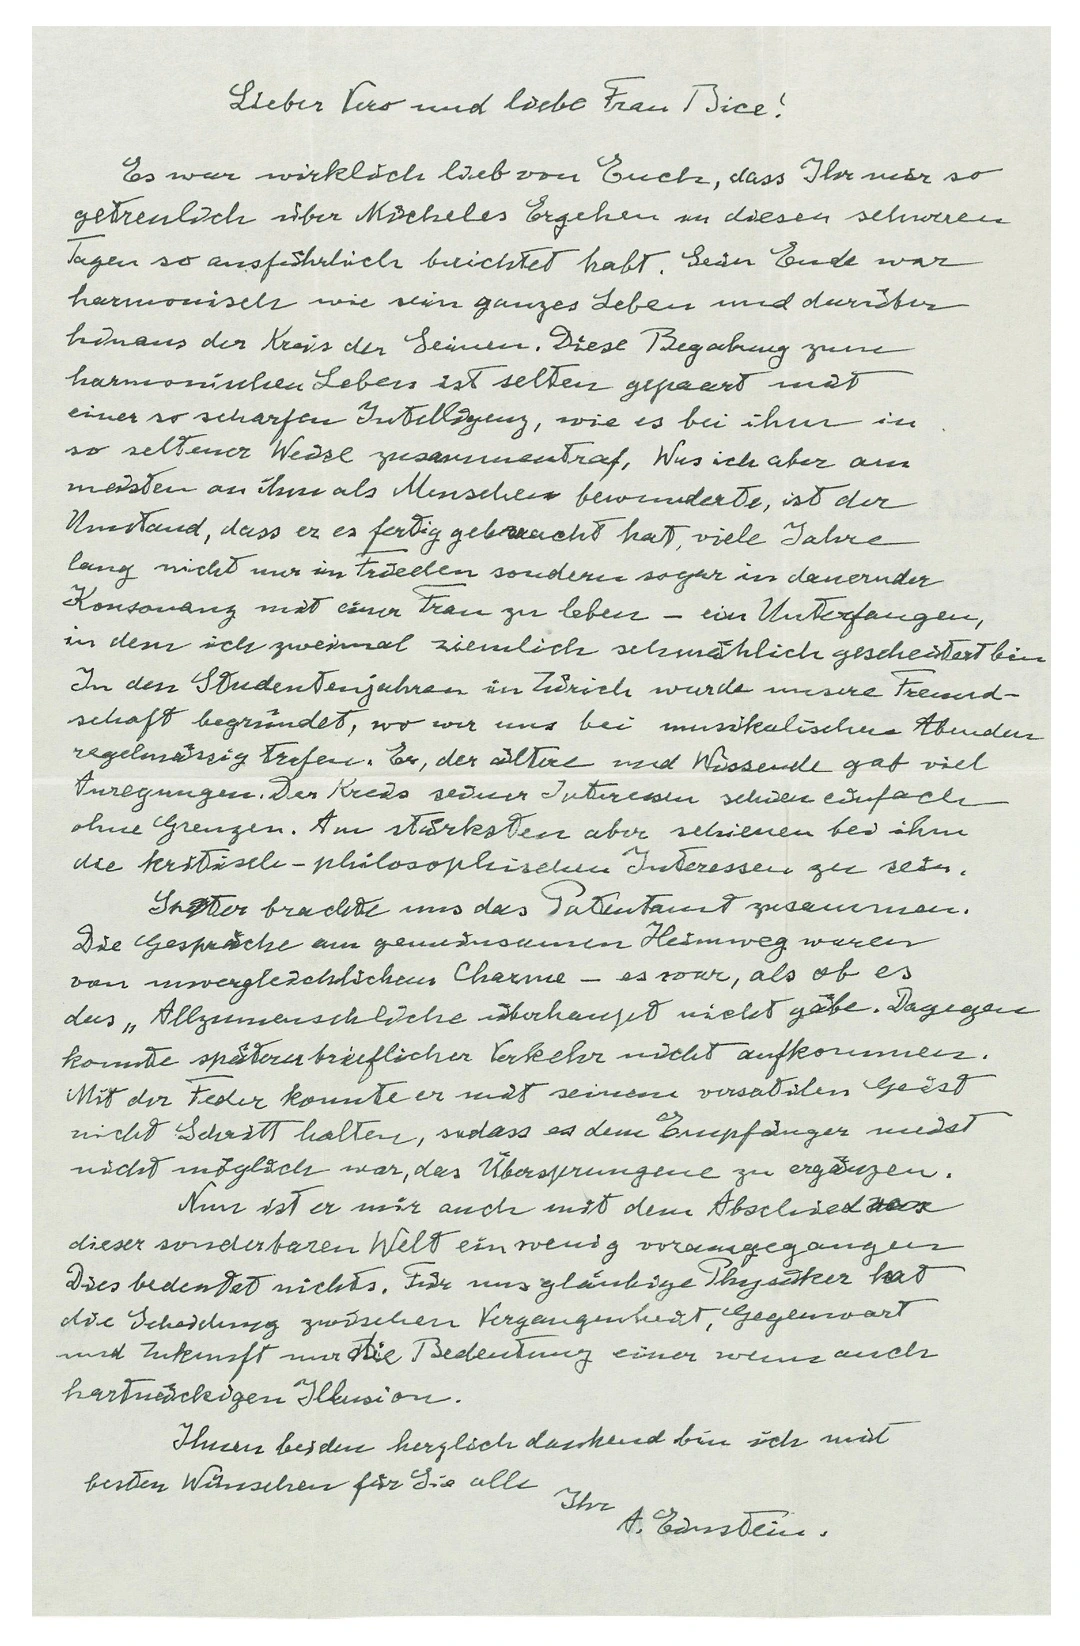 Lieber Vero und liebe Frau Bice!
Es war wirklich lieb von Euch, dass Ihr mir so
getreulich über Micheles Ergehen in diesen schweren
Tagen so ausführlich berichtet habt. Sein Ende war
harmonisch wie sein ganzes Leben und darüber
hinaus der Kreis der Seinen. Diese Begabung zum
harmonischen Leben ist selten gepaart mit
einer so scharfen Intelligenz, wie es bei ihm in
so seltener Weise zusammentraf. Was ich aber am
meisten an ihm als Menschen bewunderte, ist der
Umstand, dass er es fertig gebracht hat, viele Jahre
lang nicht nur in Frieden sondern sogar in dauernder
Konsonanz mit einer Frau zu leben – ein Unterfangen,
in dem ich zweimal ziemlich schmählich gescheitert bin
In den Studentenjahren in Zürich wurde unsere Freund-
schaft begründet, wo wir uns bei musikalischen Abenden
regelmässig trafen. Er, der ältere und Wissende gab viel
Anregungen. Der Kreis seiner Interessen schien einfach
ohne Grenzen. Am stärksten aber schienen bei ihm
die kritisch-philosophischen Interessen zu sein.
Später brachte uns das Patentamt zusammen.
Die Gespräche am gemeinsamen Heimweg waren
von unvergleichlichem Charme – es war, als ob es
das „Allzumenschliche überhaupt nicht gäbe. Dagegen
konnte späterer brieflicher Verkehr nicht aufkommen.
Mit der Feder konnte er mit seinem versatilen Geist
nicht Schritt halten, sodass es dem Empfänger meist
nicht möglich war, das Übersprungene zu ergänzen.
Nun ist er mir auch mit dem Abschied von
dieser sonderbaren Welt ein wenig vorausgegangen
Dies bedeutet nichts. Für uns gläubige Physiker hat
die Scheidung zwischen Vergangenheit, Gegenwart
und Zukunft nur die Bedeutung einer wenn auch
hartnäckigen Illusion.
Ihnen beiden herzlich dankend bin ich mit
besten Wünschen für Sie alle
Ihr
A. Einstein.